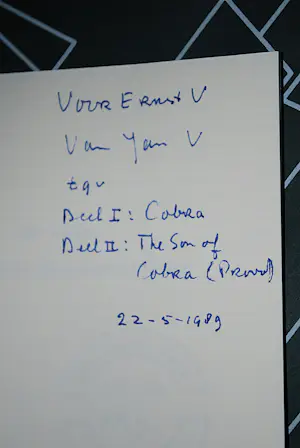 Voor Ernst V
Van Jan V
tgv
Deel I: Cobra
Deel II: The Son of
Cobra (Provo)
22-5-1989